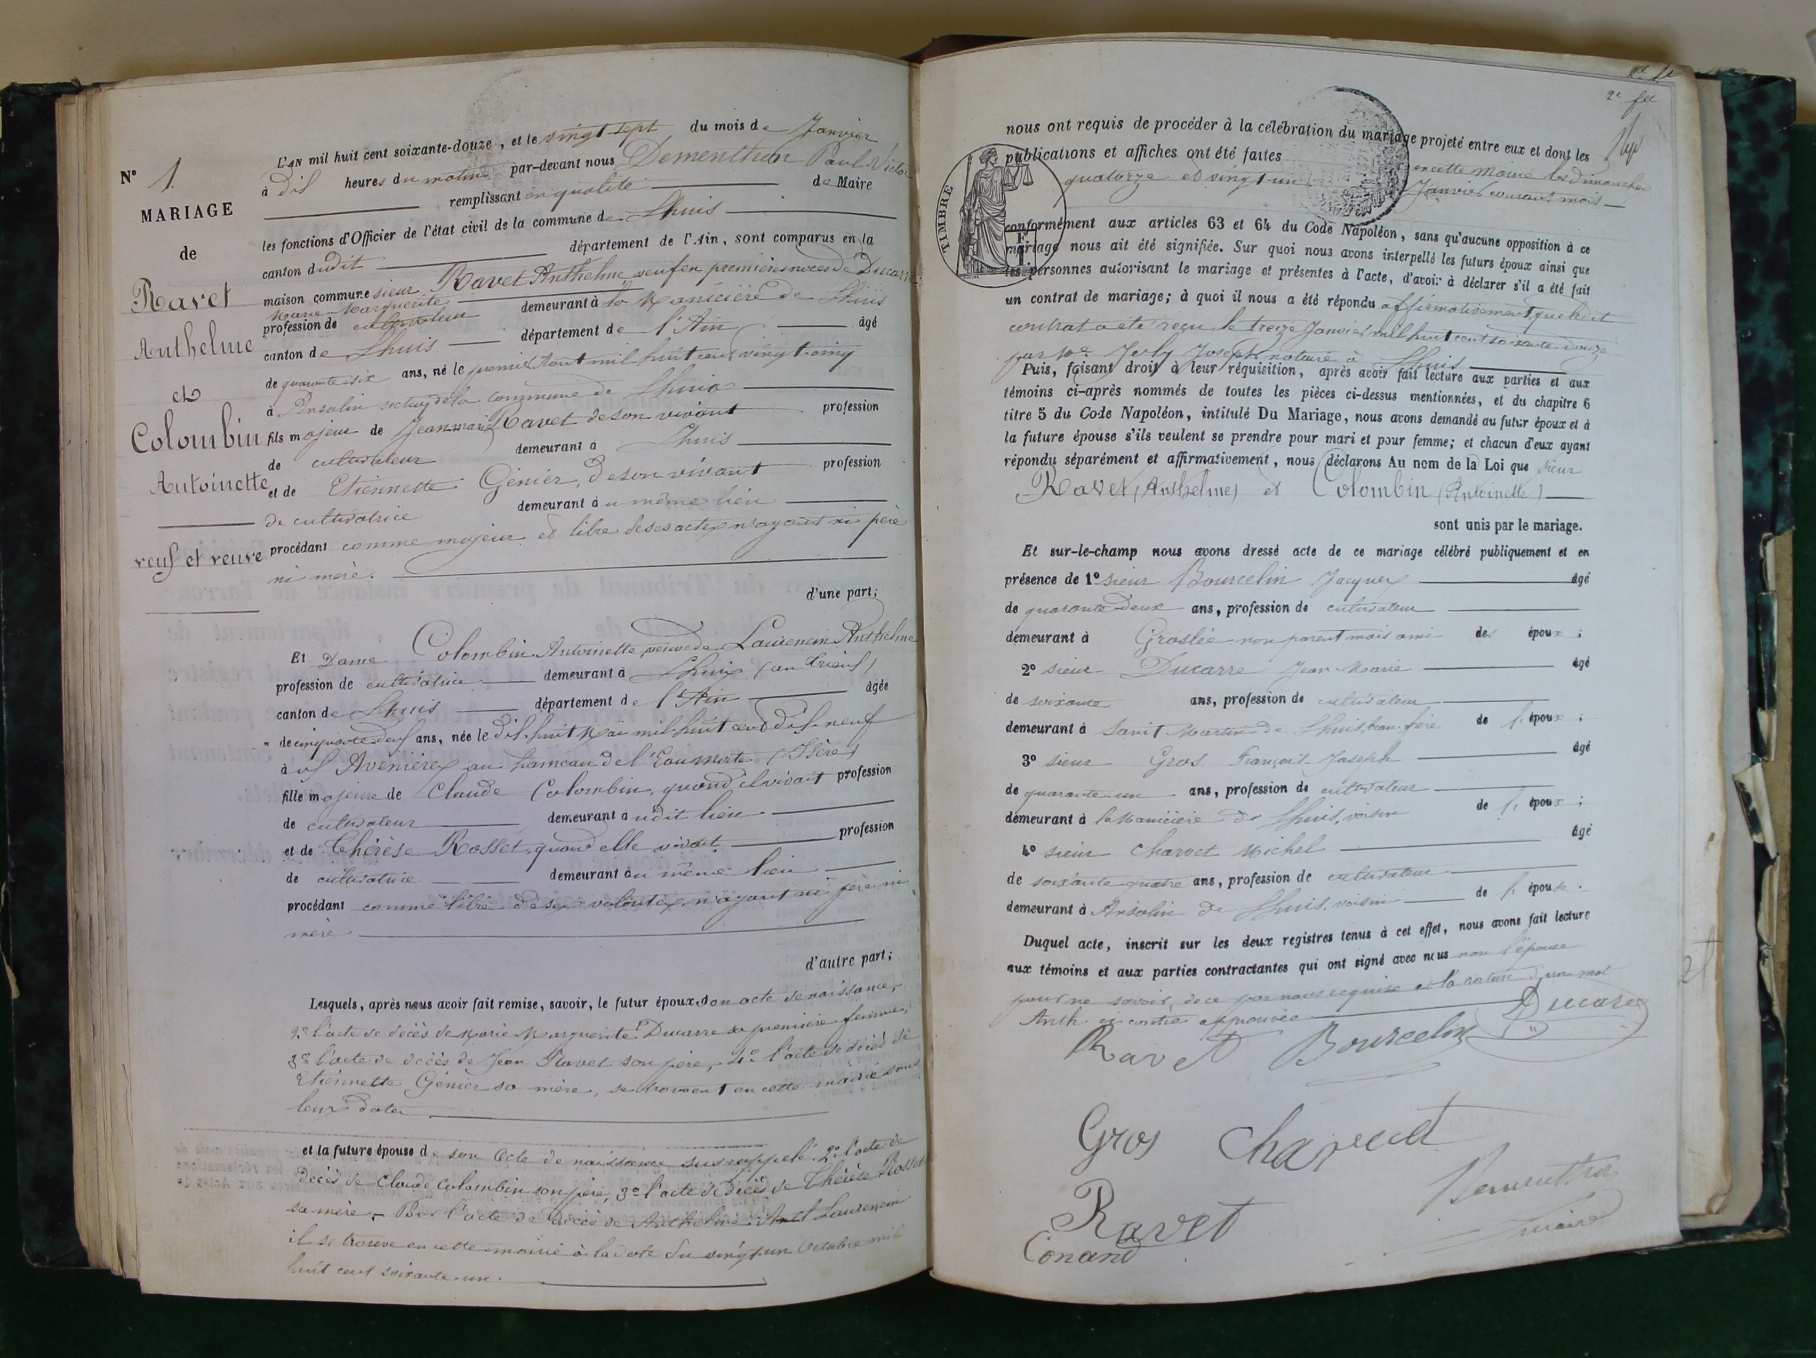 N° 1
MARIAGE
de
Ravet
Anthelme
et
Colombin
Antoinette
veuf et veuve
L'AN mil huit cent soixante-douze, et le vingt sept du mois de Janvier
à dix heures du matin par-devant nous Dementhon Paul Victor
remplissant en qualité de Maire
les fonctions d'Officier de l'état civil de la commune de Lhuis
canton dudit département de l'Ain, sont comparus en la
maison commune sieur Ravet Anthelme veuf en premières noces de Ducarre
Marie Marguerite
profession de cultivateur demeurant à la Manicière de Lhuis
canton de Lhuis département de l'Ain âgé
de quarante six ans, né le premier Aout mil huit cent vingt cinq
à Ansolin section de la commune de Lhuis
fils majeur de Jean marie Ravet de son vivant profession
de cultivateur demeurant à Lhuis
et de Etiennette Génier, de son vivant profession
de cultivatrice demeurant au même lieu
procédant comme majeur et libre de ses actes n'ayant ni père
ni mère.
d'une part;
Et Dame Colombin Antoinette, veuve de Laurencin Anthelme
profession de cultivatrice demeurant à Lhuis (au Crieul)
canton de Lhuis département de l'Ain âgée
de cinquante deux ans, née le dix huit Mai mil huit cent dix neuf
à Avenières au hameau de l'Eau morte (Isère)
fille majeure de Claude Colombin, quand il vivait profession
de cultivateur demeurant audit lieu
et de Thérèse Rosset, quand elle vivait profession
de cultivatrice demeurant au même lieu
procédant comme libre de ses volontés n'ayant ni père ni
mère
d'autre part;
Lesquels, après nous avoir fait remise, savoir, le futur époux, d son acte de naissance,
l'acte de décès de Marie Marguerite Ducarre sa première femme,
3° l'acte de décès de Jean Ravet son père, 4° l'acte de décès de
Etiennette Génier sa mère, se trouvent en cette mairie sous
leurs dates
et la future épouse d son acte de naissance susrappelé 2° l'acte de
décès de Claude Colombin son père, 3° l'acte de Décès de Thérèse Rosset
sa mère, l'acte de décès de Anthelme Laurencin
il se trouve en cette mairie à la date du vingt un Octobre mil
huit cent soixante un.
2e
nous ont requis de procéder à la célébration du mariage projeté entre eux et dont les
publications et affiches ont été faites en cette mairie les dimanches
quatorze et vingt un Janvier courant mois
TIMBRE
conformément aux articles 63 et 64 du Code Napoléon, sans qu'aucune opposition à ce
mariage nous ait été signifiée. Sur quoi nous avons interpellé les futurs époux ainsi que
les personnes autorisant le mariage et présentes à l'acte, d'avoir à déclarer s'il a été fait
un contrat de mariage; à quoi il nous a été répondu affirmativement que ledit
contrat a été reçu le treize Janvier mil huit cent soixante douze
par Me Joly Joseph notaire à Lhuis
Puis, faisant droit à leur réquisition, après avoir fait lecture aux parties et aux
témoins ci-après nommés de toutes les pièces ci-dessus mentionnées, et du chapitre 6
titre 5 du Code Napoléon, intitulé Du Mariage, nous avons demandé au futur époux et à
la future épouse s'ils veulent se prendre pour mari et pour femme; et chacun d'eux ayant
répondu séparément et affirmativement, nous déclarons Au nom de la Loi que sieur
Ravet (Anthelme) et Colombin (Antoinette)
sont unis par le mariage.
Et sur-le-champ nous avons dressé acte de ce mariage célébré publiquement et en
présence de 1° sieur Bourcelin Jacques âgé
de quarante deux ans, profession de cultivateur
demeurant à Groslée non parent mais ami des époux;
2° sieur Ducarre Jean Marie âgé
de soixante ans, profession de cultivateur
demeurant à Saint Martin de Lhuis, beau frère de l' époux;
3° sieur Gros François Joseph âgé
de quarante un ans, profession de cultivateur
demeurant à la Manicière de Lhuis, voisin de l' époux;
4° sieur Charvet Michel âgé
de soixante quatre ans, profession de cultivateur
demeurant à Ansolin de Lhuis, voisin de l' épouse.
Duquel acte, inscrit sur les deux registres tenus à cet effet, nous avons fait lecture
aux témoins et aux parties contractantes qui ont signé avec nous non l'épouse
pour ne savoir, de ce par nous requise et la rature d'un mot
Anth. ci contre approuvée
Ravet Bourcelin Ducarre
Gros Charvet
Ravet Dementhon
Conand maire